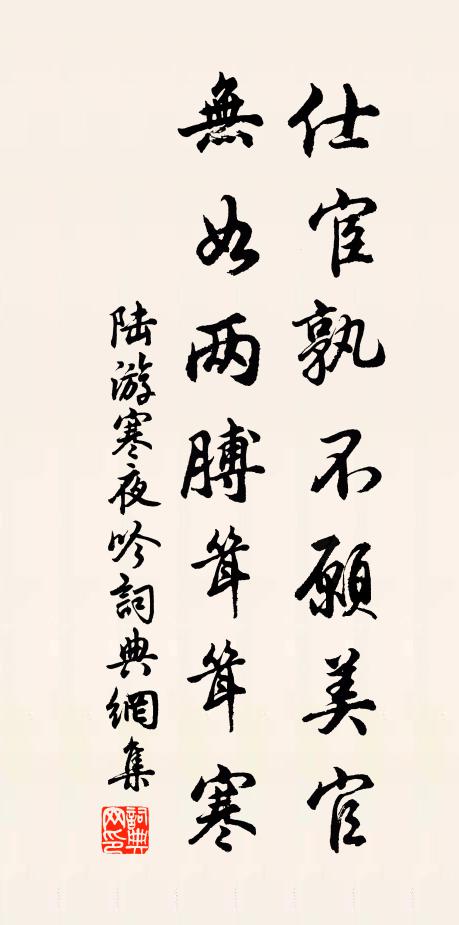 仕宦孰不願美官
無如两膊聳聳寒
陆游寒夜吟詞典網集
詞典网印